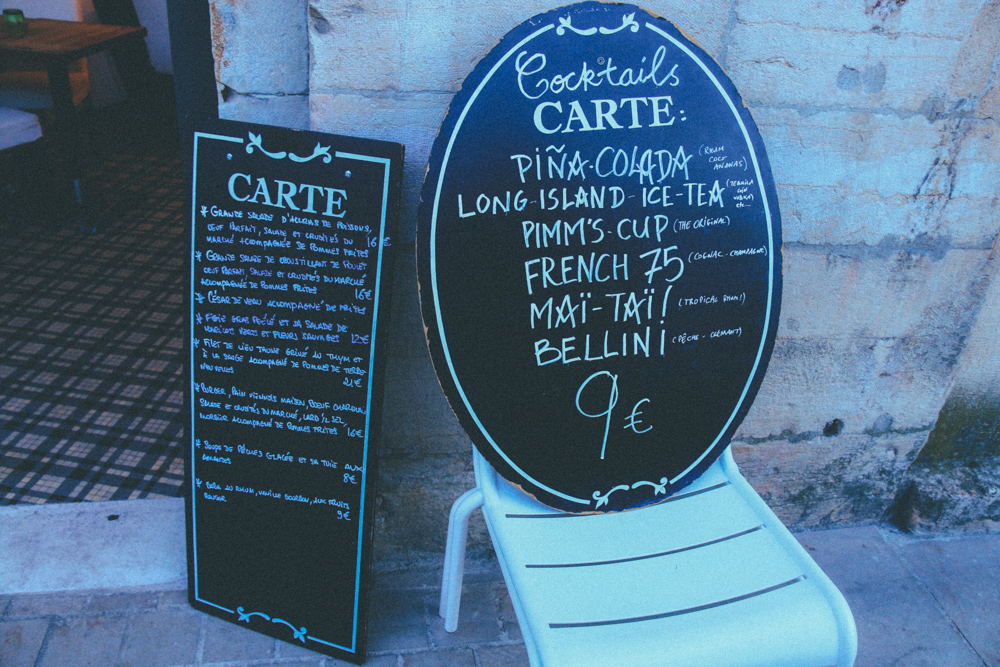 CARTE
* GRANDE SALADE D'ACCRAS DE POISSONS,
ŒUF PARFAIT, SALADE ET CRUDITÉS DU
MARCHÉ ACCOMPAGNÉE DE POMMES FRITES 16€
* GRANDE SALADE DE CROUSTILLANT DE POULET
ŒUF PARFAIT, SALADE ET CRUDITÉS DU MARCHÉ
ACCOMPAGNÉE DE POMMES FRITES
16€
* CÉSAR DE VEAU ACCOMPAGNÉ DE FRITES
* FOIE GRAS POÊLÉ ET SA SALADE DE
HARICOTS VERTS ET FLEURS SAUVAGES 12€
* FILET DE LIEU JAUNE GRILLÉ AU THYM ET
À LA SAUGE ACCOMPAGNÉ DE POMMES DE TERRE
NOUVELLES
21€
* BURGER, PAIN VIENNOIS MAISON, BŒUF CHAROLAIS,
SALADE ET CRUDITÉS DU MARCHÉ, LARD ½ SEL,
MORBIER ACCOMPAGNÉ DE POMMES FRITES 16€
* SOUPE DE PÊCHES GLACÉE ET SA TUILE AUX
AMANDES
8€
* BABA AU RHUM, VANILLE BOURBON, AUX FRUITS
ROUGES
9€
Cocktails
CARTE:
PIÑA-COLADA (RHUM COCO ANANAS)
LONG-ISLAND-ICE-TEA (TEQUILA GIN VODKA) ETC...
PIMM'S-CUP (THE ORIGINAL)
FRENCH 75 (COGNAC-CHAMPAGNE)
MAÏ-TAÏ! (TROPICAL RHUM!)
BELLINI (PÊCHE-CRÉMANT)
9€